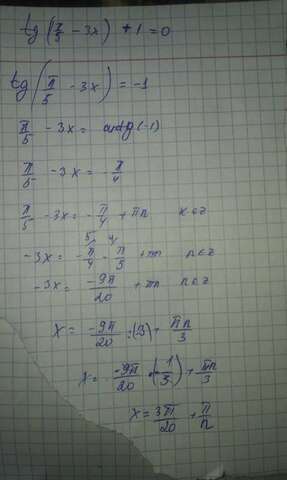 tg(π/5 - 3x) + 1 = 0
tg(π/5 - 3x) = -1
π/5 - 3x = arctg(-1)
π/5 - 3x = -π/4
π/5 - 3x = -π/4 + πn n∈z
5 4
-3x = -π/4 - π/5 + πn n∈z
-3x = -9π/20 + πn n∈z
x = -9π/20 :(-3) + πn/3
x = -9π/20 · (-1/3) + πn/3
x = 3π/20 + π/n